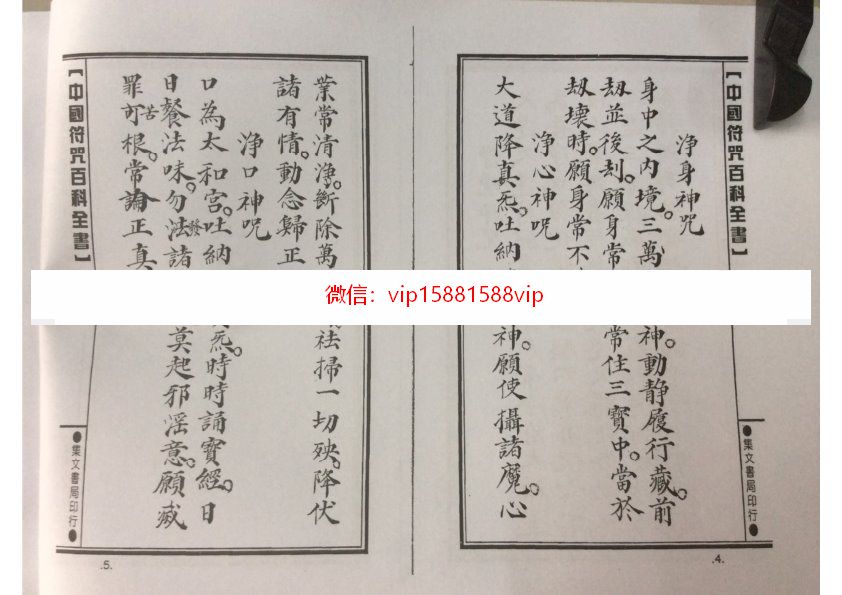 【中國符咒百科全書】
淨身神咒
身中之內境。三萬神。動靜履行藏前
劫並後刦。願身常常住三寶中。當於
劫壞時。願身常不
淨心神呪
大道降真炁。吐納神。願使攝諸魔。心
●集文書局印行●
.4.
微信：vip15881588vip
業常清淨。斷除萬祛掃一切殃。降伏
諸有情。動念歸正
淨口神呪
口為太和宮。吐納炁。時時誦寶經。日
日餐法味。勿法諸莫起邪淫意。願滅
罪苦根。常論正真
【中國符咒百科全書】
●集文書局印行●
.5.